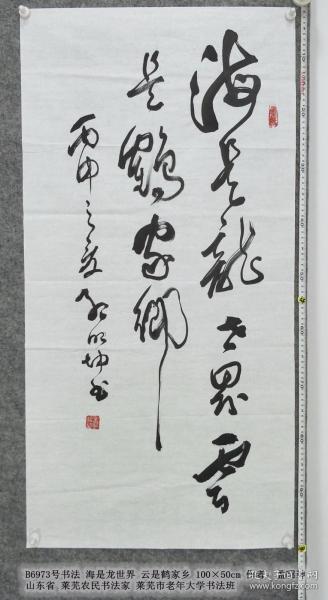 海是龙世界云
是鹤家乡
丙申之夏
B6973号书法 海是龙世界 云是鹤家乡 100×50cm 作者：
山东省 莱芜农民书法家 莱芜市老年大学书法班